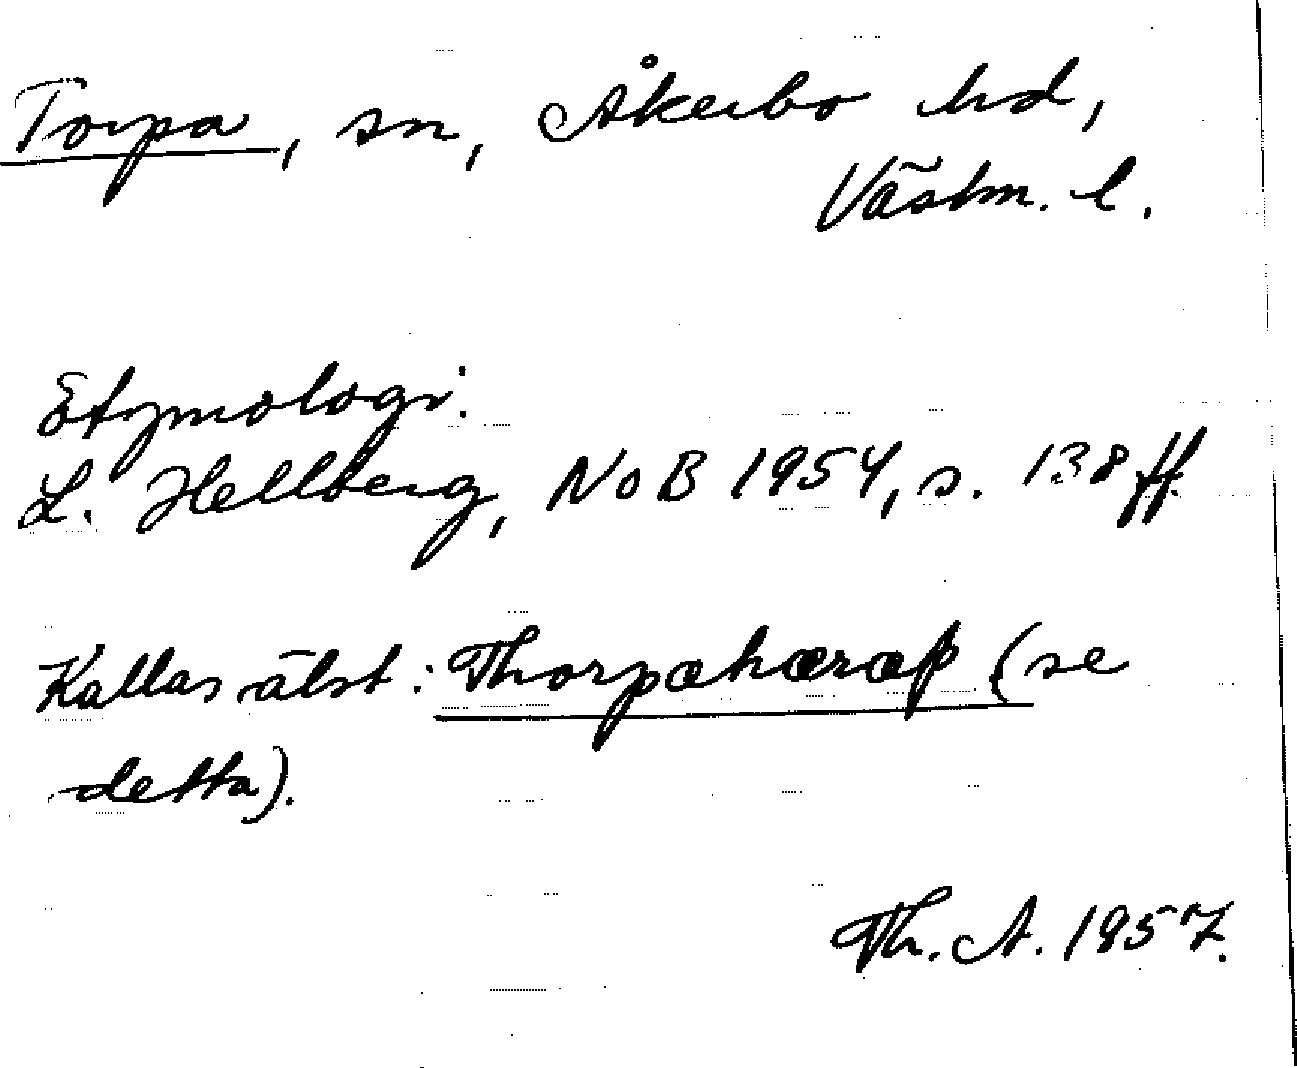 Torpa, sn, Åkerbo hd,
Västm. l.
Etymologi:
L. Hellberg, NoB 1954, s. 138 ff.
Kallas älst: Thorpæhæræþ (se
detta).
Th. A. 1957.